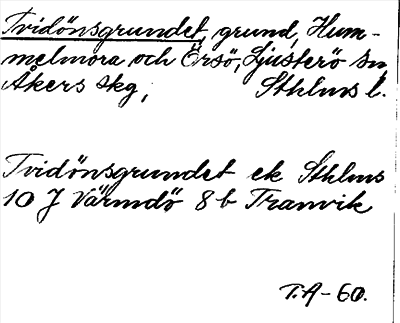 Tvidönsgrundet, grund, Hum-
melmora och Örsö, Ljusterö sn,
Åkers skg, Sthlms l.
Tvidönsgrundet ek Sthlms
10 J Värmdö 8 b Tranvik
T.A-60.